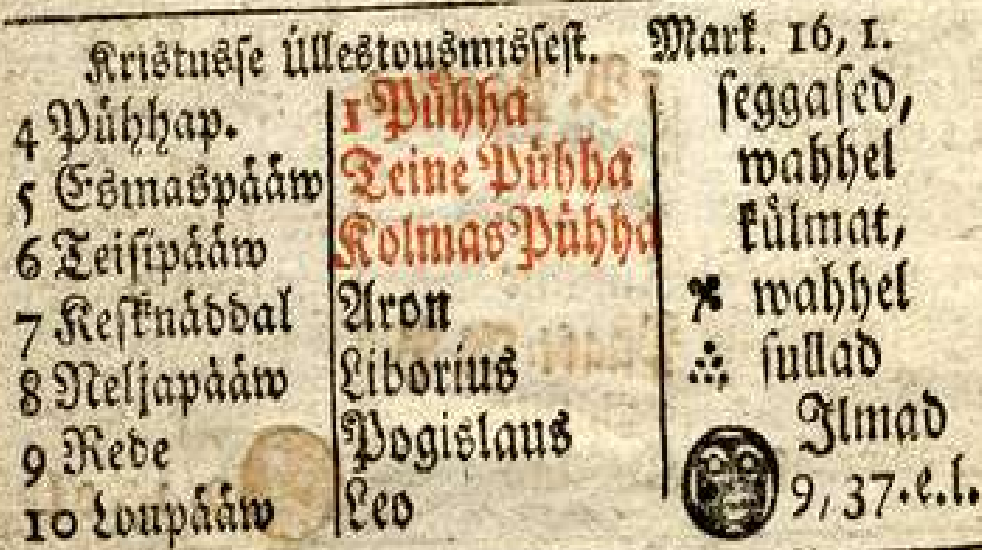 Kristusse üllestousmissest. Mark. 16, 1.
4 Pühhap. 1 Pühha seggased,
5 Esmaspääw Teine Pühha wahhel
6 Teisipääw Kolmas Pühha külmat,
7 Kesknäddal Aron wahhel
8 Neljapääw Liborius sullad
9 Rede Pogislaus Ilmad
10 Loupääw Leo 9, 37. e. l.